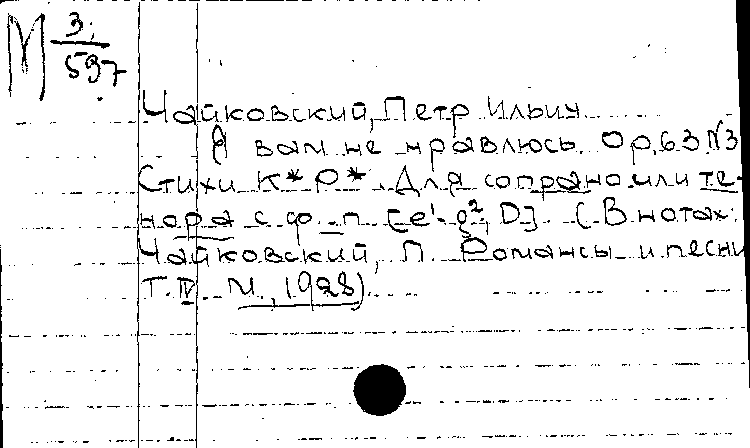 М 3;
597
Чайковский, Петр Ильич
Я вам не нравлюсь. Op.63 N3
Стихи К*Р*. Для сопрано или те-
нора с ф.-п. [e¹-g², D]. (В нотах:
Чайковский, П. Романсы и песни
Т. IV. М., 1928)